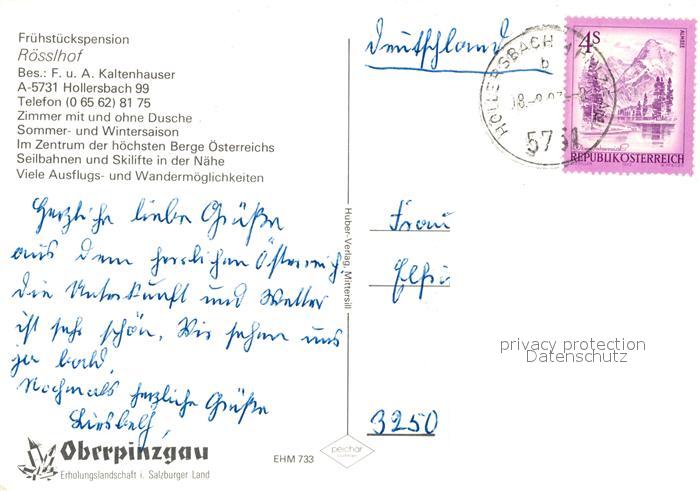 Frühstückspension
Rösslhof
Bes.: F. u. A. Kaltenhauser
A-5731 Hollersbach 99
Telefon (0 65 62) 81 75
Zimmer mit und ohne Dusche
Sommer- und Wintersaison
Im Zentrum der höchsten Berge Österreichs
Seilbahnen und Skilifte in der Nähe
Viele Ausflugs- und Wandermöglichkeiten
Herzliche liebe Grüße
aus dem herrlichen Österreich.
Die Unterkunft und Wetter
ist sehr schön. Wir sehen uns
ja bald.
Nochmals herzliche Grüße
Liesbeth
Oberpinzgau
Erholungslandschaft i. Salzburger Land
EHM 733
Huber-Verlag, Mittersill
Deutschland
HOLLERSBACH
b
5731
4S
ALMSEE
REPUBLIK ÖSTERREICH
Frau
Elfri
privacy protection
Datenschutz
3250